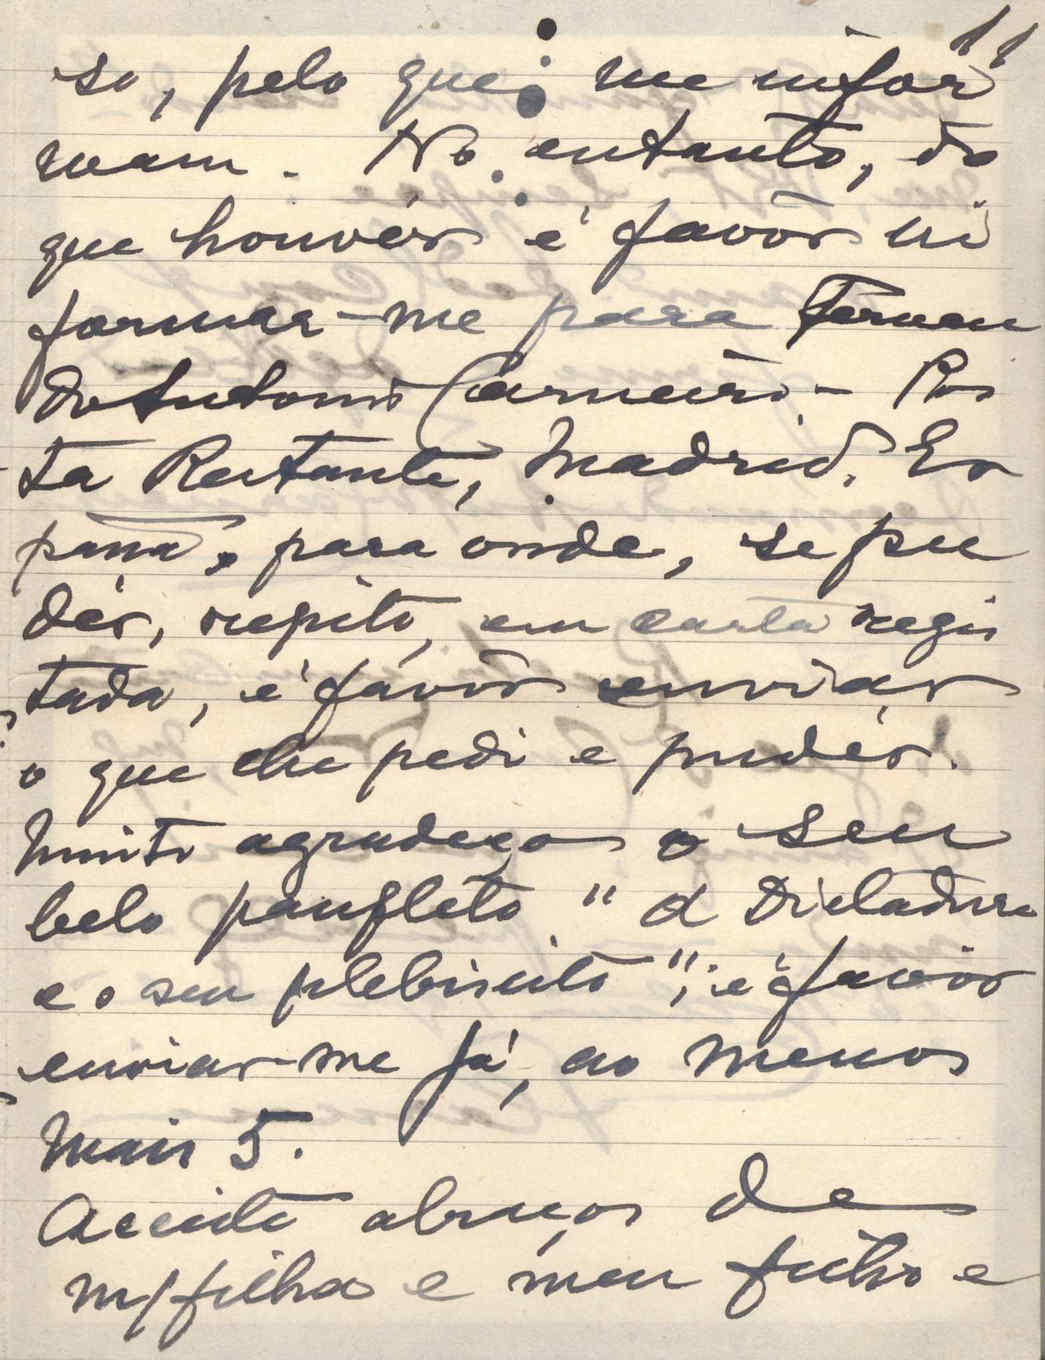 11
so, pelo que me infor
mam. No entanto, do
que houvér é favôr in
formar-me para Fernan
do Antonio Carneiro - Pos
ta Restante, Madrid. Es
paña, para onde, se pu
dér, repito, em carta regis
tada, é favôr enviar
o que lhe pedi e pudér.
Muito agradeço o seu
belo panfleto "A Dictadura
e o seu plebiscito"; é favôr
enviar-me já, ao menos
mais 5.
Acceite abraços de
m/ filha e meu filho e